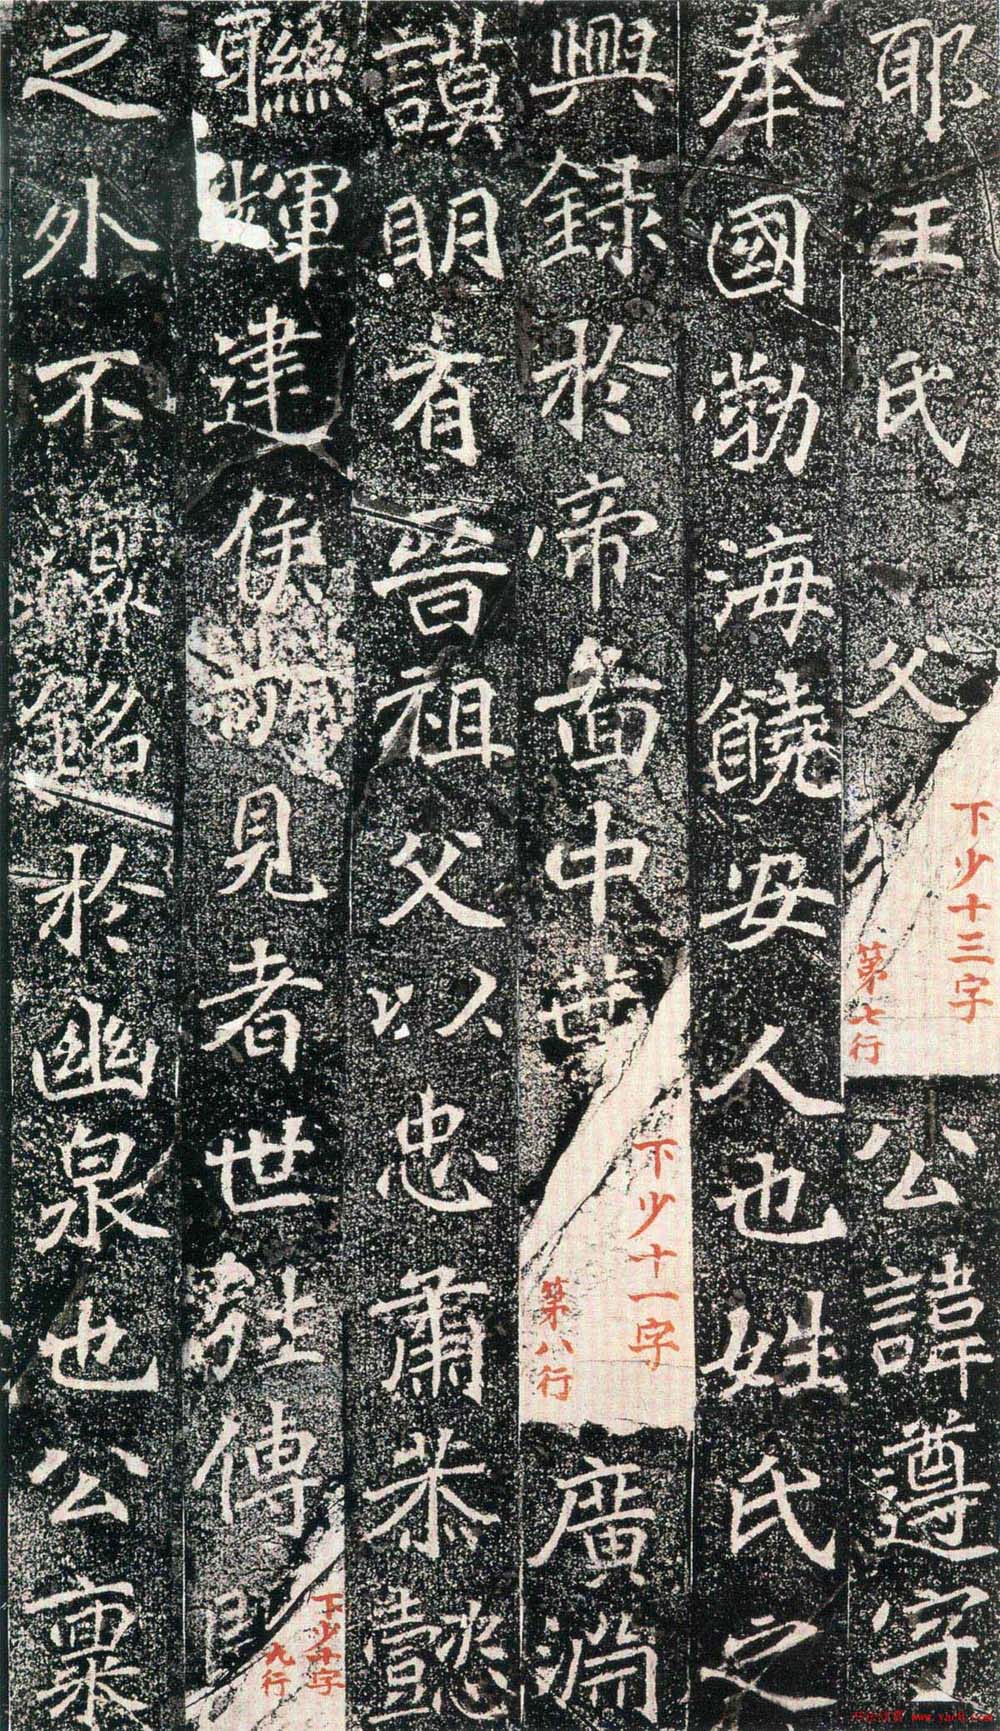 耶王氏父
下少十三字
第七行
公諱遵字
奉國勃海饒安人也姓氏之
興録於帝啚中葉
下少十一字
第八行
廣淵
謨明有晉祖父以忠肅恭懿
聯輝建侯 見者世 傳
下少十字
九行
之外不復銘於幽泉也公稟